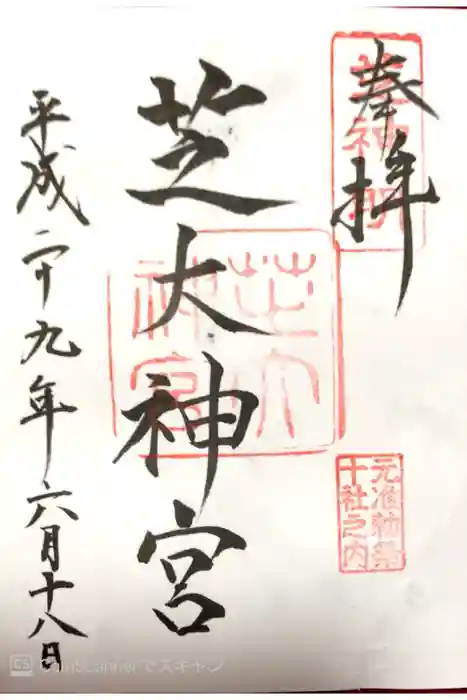 奉拝
芝神明
芝大神宮
芝大神宮
元准勅祭
十社之内
平成二十九年六月十八日
CS CamScannerでスキャン